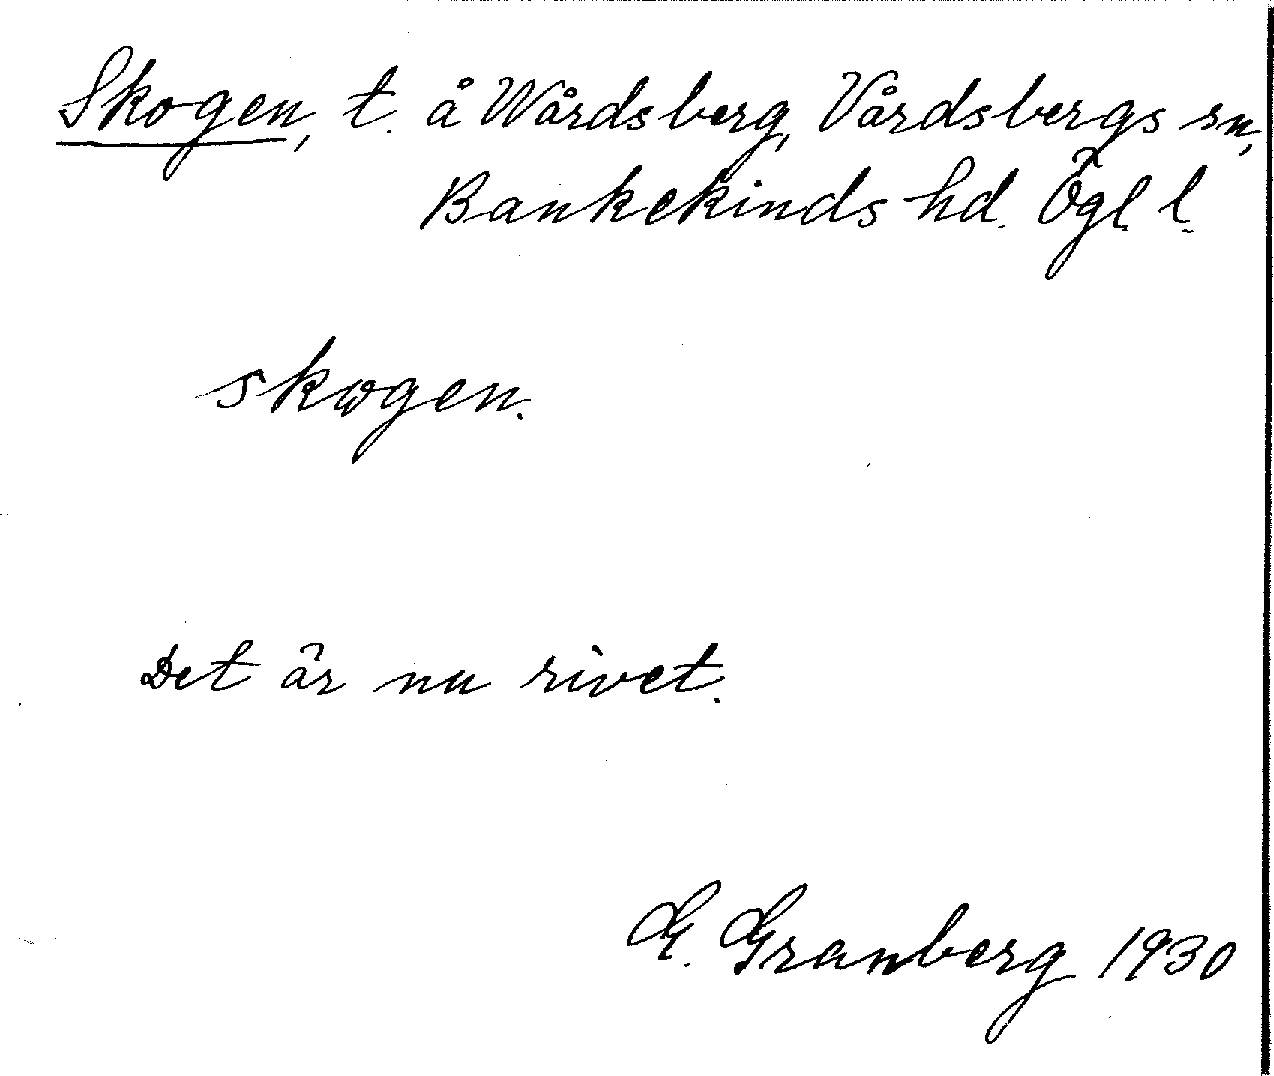 Skogen, t. å Wårdsberg, Vårdsbergs sn,
Bankekinds hd. Ögl. l.
skogen.
Det är nu rivet.
G. Granberg 1930